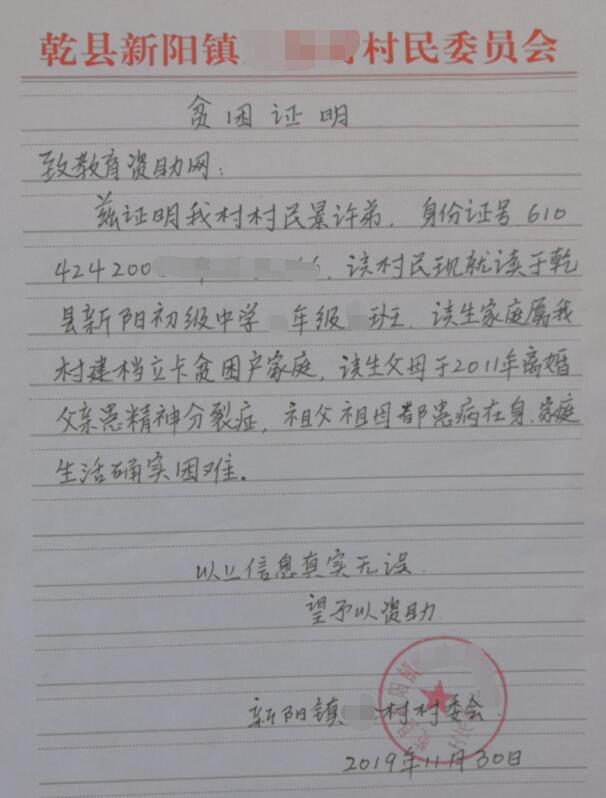 乾县新阳镇 村民委员会
贫困证明
致教育资助网:
兹证明我村村民景许弟,身份证号610
424200 66,该村民现就读于乾
县新阳初级中学 年级 班,该生家庭属我
村建档立卡贫困户家庭,该生父母于2011年离婚
父亲患精神分裂症,祖父祖母都患病在身.家庭
生活确实困难.
以上信息真实无误.
望予以资助.
新阳镇 村村委会
2019年11月30日